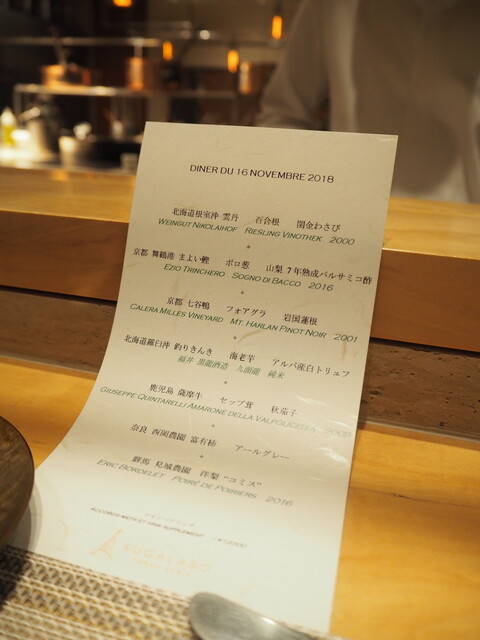 DINER DU 16 NOVEMBRE 2018
北海道根室沖 雲丹 百合根 閖金わさび
WEINGUT NIKOLAIHOF RIESLING VINOTHEK 2000
京都 舞鶴港 まよい鰹 ポロ葱 山梨 7年熟成バルサミコ酢
EZIO TRINCHERO SOGNO DI BACCO 2016
京都 七谷鴨 フォアグラ 岩国蓮根
CALERA MILLES VINEYARD MT. HARLAN PINOT NOIR 2001
北海道羅臼沖 釣りきんき 海老芋 アルバ産白トリュフ
福井 黒龍酒造 九頭龍 純米
鹿児島 薩摩牛 セップ茸 秋茄子
GIUSEPPE QUINTARELLI AMARONE DELLA VALPOLICELLA
奈良 西岡農園 富有柿 アールグレー
群馬 見城農園 洋梨 "コミス"
ERIC BORDELET POIRÉ DE POIRIERS 2016
ACCORDS METS ET VINS SUPPLEMENT
LUGALABO